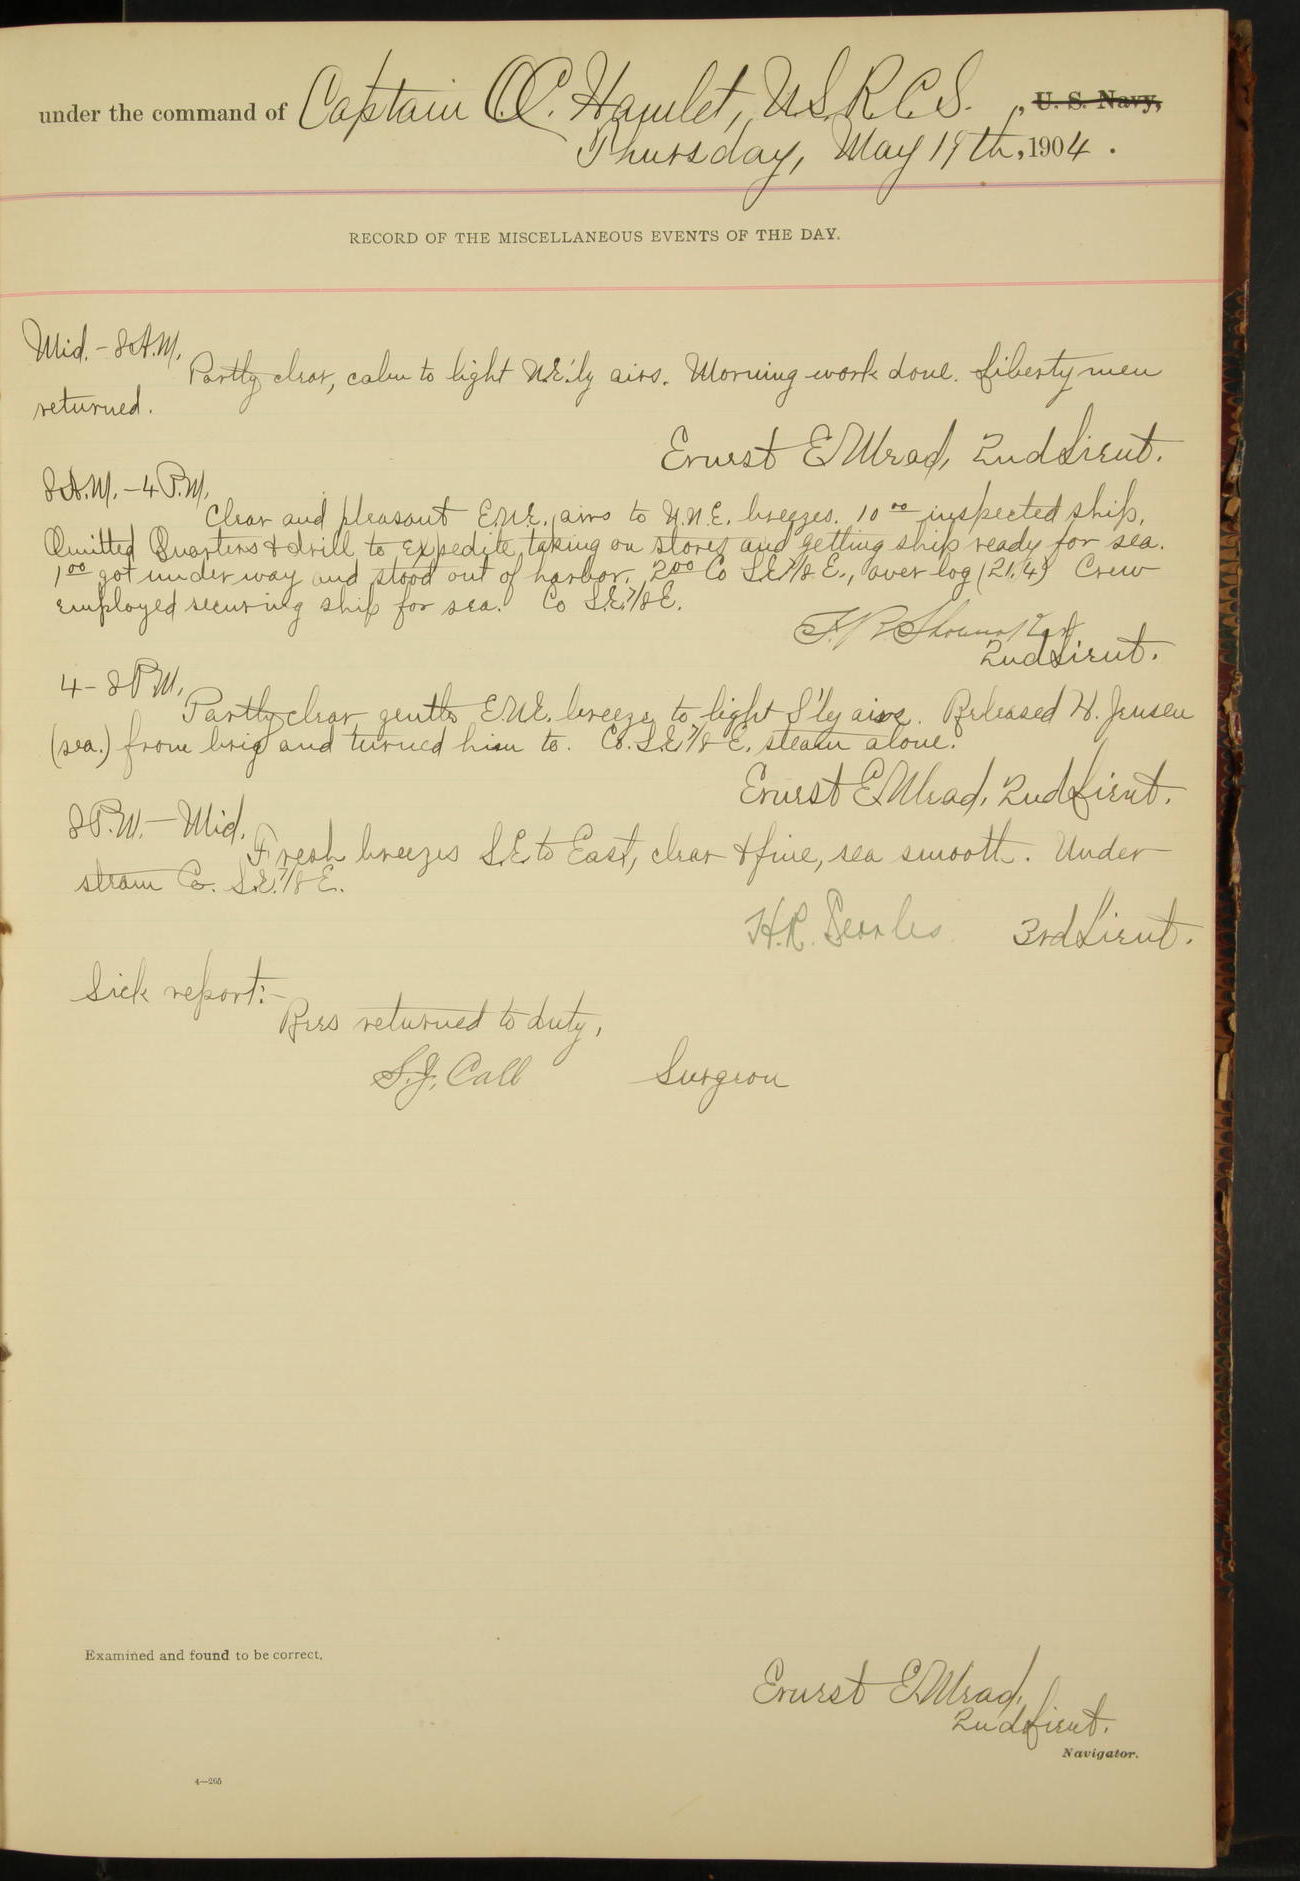 under the command of Captain O.C. Hamlet, U.S.R.C.S. , U. S. Navy,
Thursday, May 19th, 1904.
RECORD OF THE MISCELLANEOUS EVENTS OF THE DAY.
Mid. - 8 A.M.
Partly clear, calm to light N.E.'ly airs. Morning work done. Liberty men
returned.
Ernest E. Mead, 2nd Lieut.
8 A.M. - 4 P.M.
Clear and pleasant E.N.E. airs to N.N.E. breezes. 10 00 inspected ship.
Omitted Quarters & drill to expedite taking on stores and getting ship ready for sea.
1 00 got under way and stood out of harbor. 2 00 Co S.E. 7/8 E., over log (21.4) Crew
employed securing ship for sea. Co S.E. 7/8 E.
F.R. Shoemaker
2nd Lieut.
4 - 8 P.M.
Partly clear, gentle E.N.E. breeze to light S'ly airs. Released H. Jensen
(sea.) from brig and turned him to. Co. S.E. 7/8 E. steam alone.
Ernest E. Mead, 2nd Lieut.
8 P.M. - Mid.
Fresh breezes S.E. to East, clear & fine, sea smooth. Under
steam Co. S.E. 7/8 E.
H.R. Searles 3rd Lieut.
Sick report:-
Rees returned to duty,
S.J. Call Surgeon
Examined and found to be correct.
Ernest E. Mead,
2nd Lieut.
Navigator.
4—265